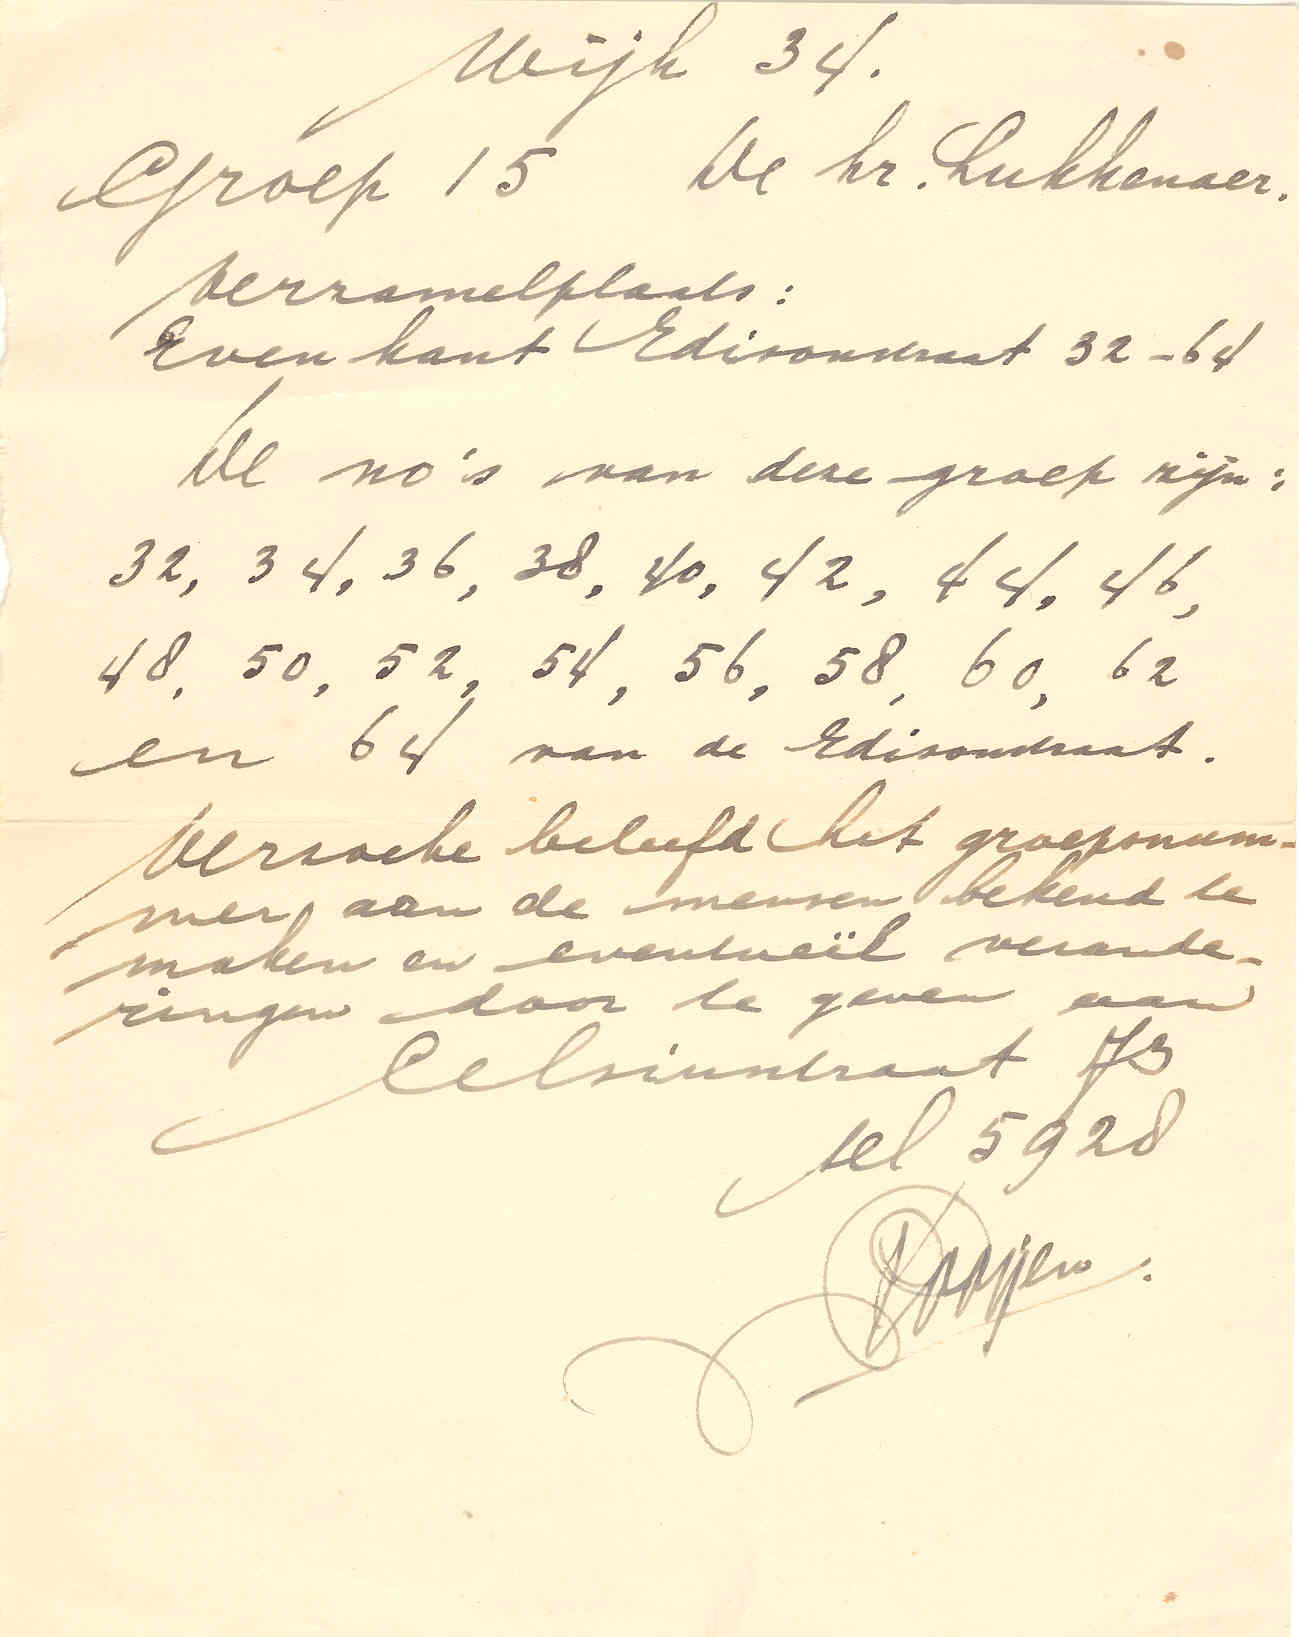 Wijk 34.
Groep 15 De hr. Lukkenaer.
Verzamelplaats:
Even kant Edisonstraat 32-64
De no's van deze groep zijn:
32, 34, 36, 38, 40, 42, 44, 46,
48, 50, 52, 54, 56, 58, 60, 62
en 64 van de Edisonstraat.
Verzoeke beleefd het groepsnum-
mer aan de mensen bekend te
maken en eventueël verande-
ringen door te geven aan
Celsiusstraat 73
tel 5928